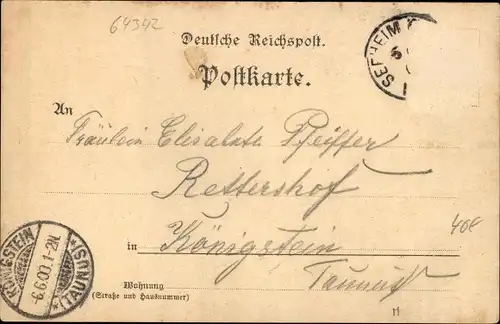 64342
Deutsche Reichspost.
Postkarte.
SEEHEIM
An
Fräulein Elisabeth Pfeiffer
Rettershof
40€
in Königstein
Taunus
KÖNIGSTEIN
-6.6.00.1-2N.
*(TAUNUS)*
Wohnung
(Straße und Hausnummer)
11